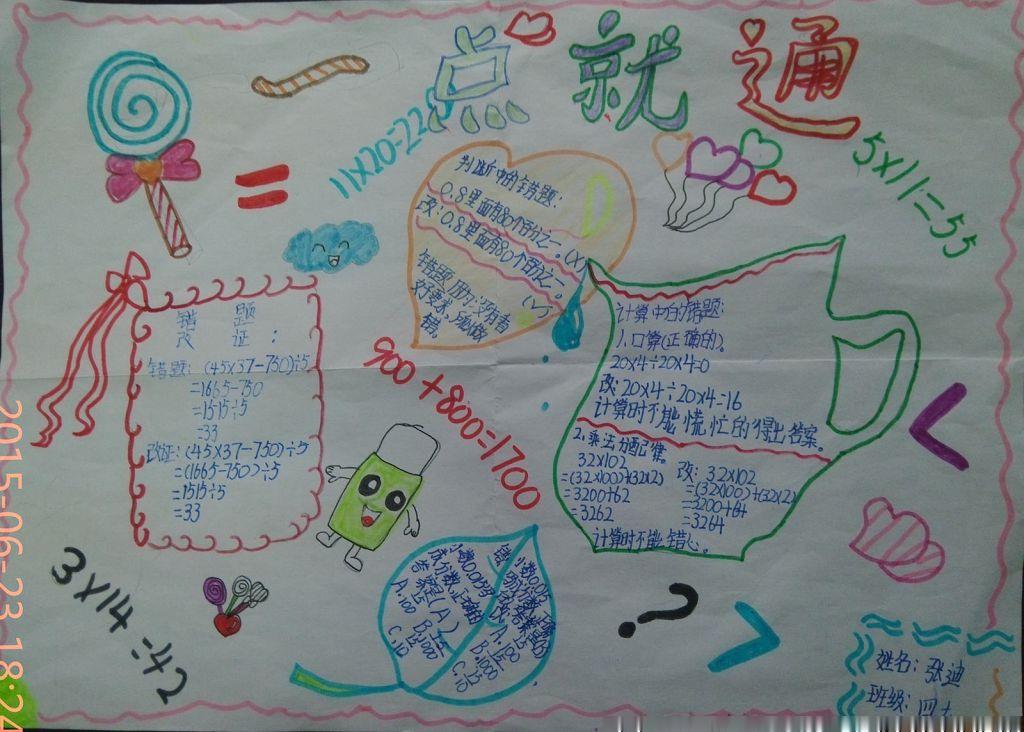 一点就通
11×20=22
5×11=55
判断中的错题：
0.8里面有80个百分之一。(×)
改：0.8里面有80个百分之一。(√)
错题原因：没有看
好要求，就做
错。
错 题
改 证：
错题：(45×37-750)÷5
=1665-750
=1515÷5
=33
改证：(45×37-750)÷5
=(1665-750)÷5
=1515÷5
=33
900+800=1700
计算中的错题：
1、口算(正确的)。
20×4÷20×4=0
改：20×4÷20×4=16
计算时不能慌忙的得出答案。
2、乘法分配律。
32×102
=(32×100)+(32×2)
=3200+62
=3262
改：32×102
=(32×100)+(32×2)
=3200+64
=3264
计算时不能错心。
<
3×14=42
小数0.015
成分数，正确的
答案是(A)
?
>
姓名：张迪
班级：四
2015-06-23 18:24